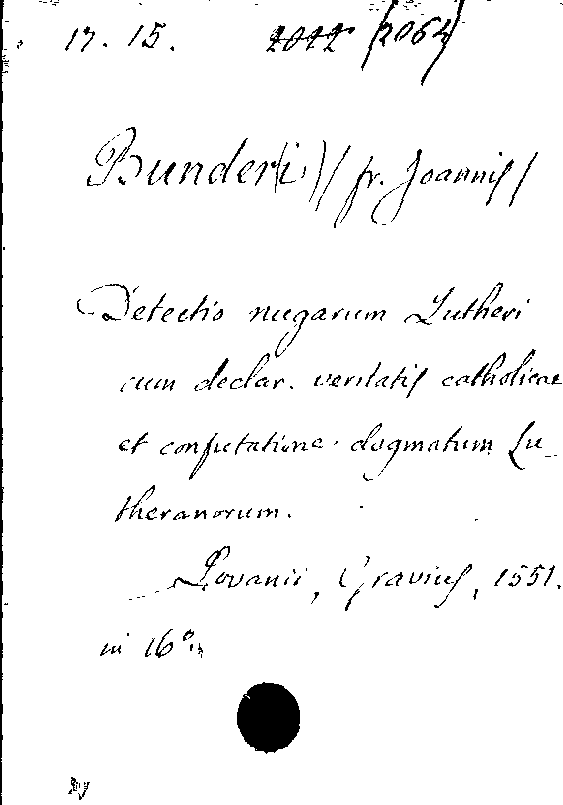 17. 15. 2022 (2064)
Bunder(i.) / fr. Joannis /
Detectio nugarum Lutheri
cum declar. veritatis catholicae
et confutatione dogmatum Lu-
theranorum.
Lovanii, Gravius, 1551.
in 16°.